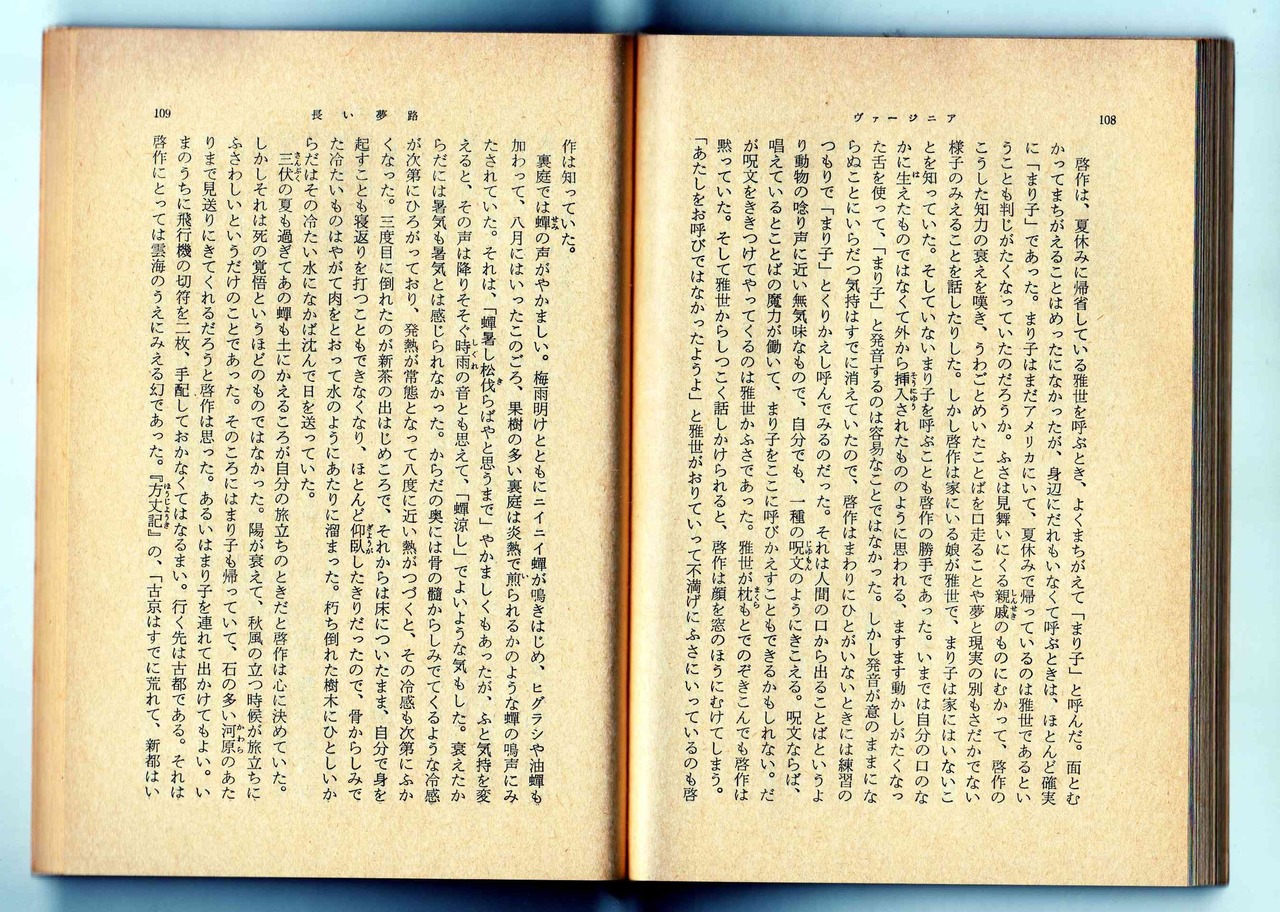 108
ヴァージニア
啓作は、夏休みに帰省している雅世を呼ぶとき、よくまちがえて「まり子」と呼んだ。面とむ
かってまちがえることはめったになかったが、身辺にだれもいなくて呼ぶときは、ほとんど確実
に「まり子」であった。まり子はまだアメリカにいて、夏休みで帰っているのは雅世であるとい
うことも判じがたくなっていたのだろうか。ふさは見舞いにくる親戚のものにむかって、啓作の
こうした知力の衰えを嘆き、うわごとめいたことばを口走ることや夢と現実の別もさだかでない
様子のみえることを話したりした。しかし啓作は家にいる娘が雅世で、まり子は家にはいないこ
とを知っていた。そしていないまり子を呼ぶことも啓作の勝手であった。いまでは自分の口のな
かに生えたものではなくて外から挿入されたもののように思われる、ますます動かしがたくなっ
た舌を使って、「まり子」と発音するのは容易なことではなかった。しかし発音が意のままにな
らぬことにいらだつ気持はすでに消えていたので、啓作はまわりにひとがいないときには練習の
つもりで「まり子」とくりかえし呼んでみるのだった。それは人間の口から出ることばというよ
り動物の唸り声に近い無気味なもので、自分でも、一種の呪文のようにきこえる。呪文ならば、
唱えているとことばの魔力が働いて、まり子をここに呼びかえすこともできるかもしれない。だ
が呪文をききつけてやってくるのは雅世かふさであった。雅世が枕もとでのぞきこんでも啓作は
黙っていた。そして雅世からしつこく話しかけられると、啓作は顔を窓のほうにむけてしまう。
「あたしをお呼びではなかったようよ」と雅世がおりていって不満げにふさにいっているのも啓
109
長い夢路
作は知っていた。
裏庭では蟬の声がやかましい。梅雨明けとともにニイニイ蟬が鳴きはじめ、ヒグラシや油蟬も
加わって、八月にはいったこのごろ、果樹の多い裏庭は炎熱で煎られるかのような蟬の鳴声にみ
たされていた。それは、「蟬暑し松伐らばやと思うまで」やかましくもあったが、ふと気持を変
えると、その声は降りそそぐ時雨の音とも思えて、「蟬涼し」でよいような気もした。衰えたか
らだには暑気も暑気とは感じられなかった。からだの奥には骨の髄からしみでてくるような冷感
が次第にひろがっており、発熱が常態となって八度に近い熱がつづくと、その冷感も次第にふか
くなった。三度目に倒れたのが新茶の出はじめころで、それからは床についたまま、自分で身を
起すことも寝返りを打つこともできなくなり、ほとんど仰臥したきりだったので、骨からしみで
た冷たいものはやがて肉をとおって水のようにあたりに溜まった。朽ち倒れた樹木にひとしいか
らだはその冷たい水になかば沈んで日を送っていた。
三伏の夏も過ぎてあの蟬も土にかえるころが自分の旅立ちのときだと啓作は心に決めていた。
しかしそれは死の覚悟というほどのものではなかった。陽が衰えて、秋風の立つ時候が旅立ちに
ふさわしいというだけのことであった。そのころにはまり子も帰っていて、石の多い河原のあた
りまで見送りにきてくれるだろうと啓作は思った。あるいはまり子を連れて出かけてもよい。い
まのうちに飛行機の切符を二枚、手配しておかなくてはなるまい。行く先は古都である。それは
啓作にとっては雲海のうえにみえる幻であった。『方丈記』の、「古京はすでに荒れて、新都はい